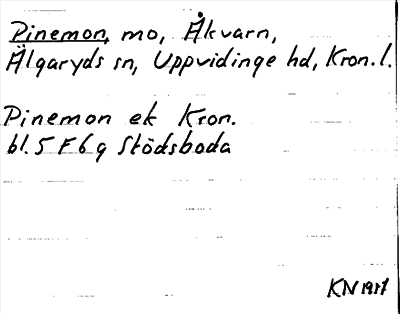 Pinemon, mo, Åkvarn,
Älgaryds sn, Uppvidinge hd, Kron. l.
Pinemon ek Kron.
bl. 5 F 6 g Stödsboda
KN